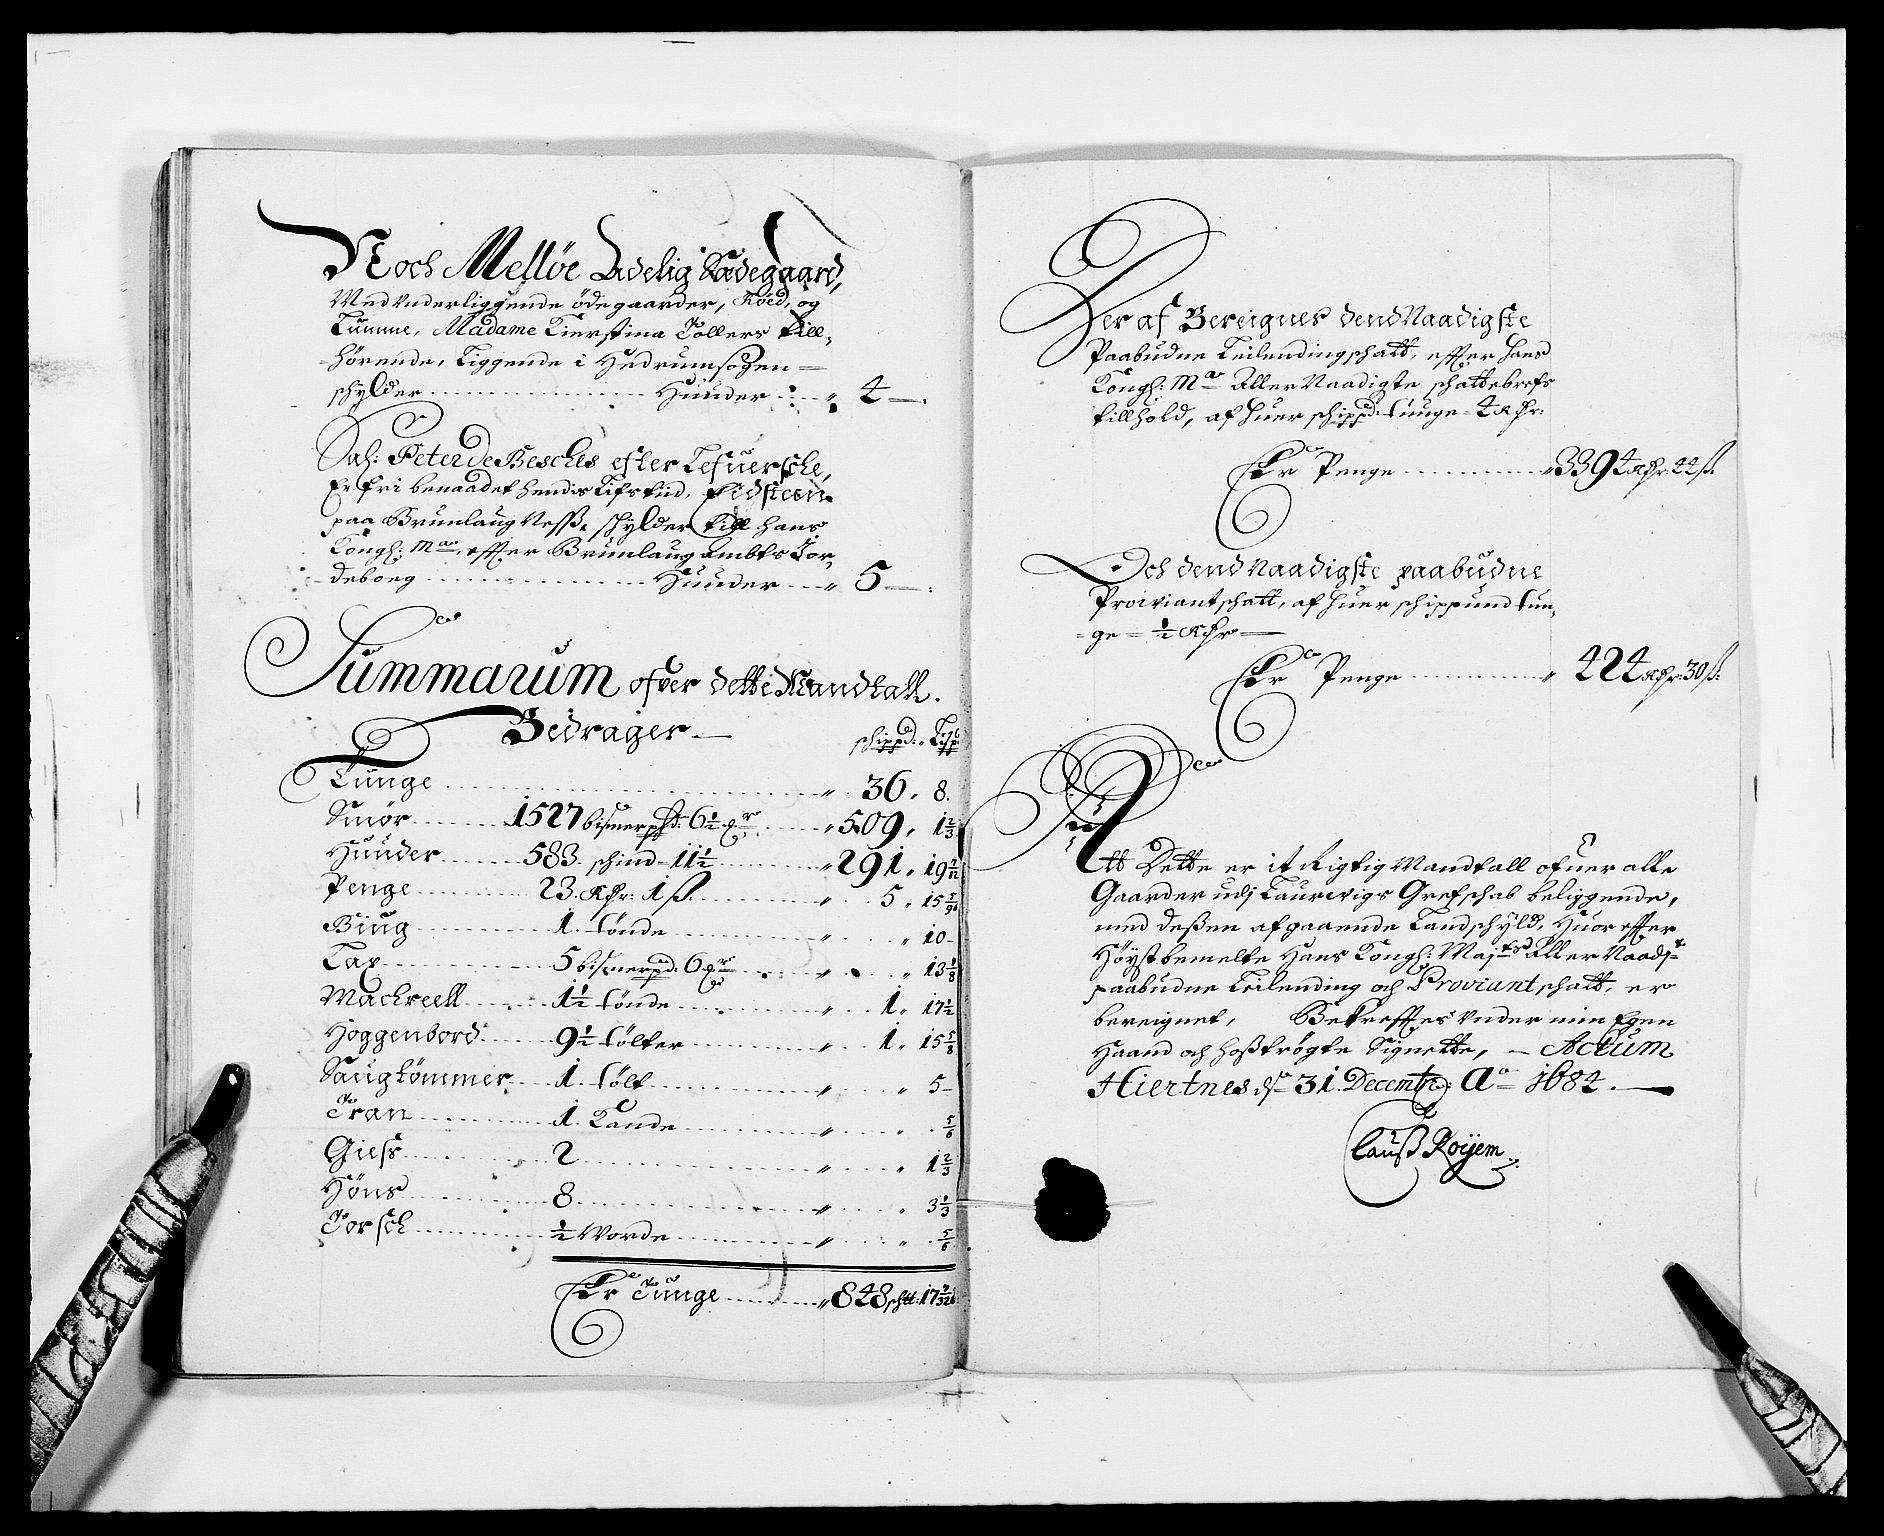 Noch Melløe Adelig Sædegaard,
Med Vnderliggende ødegaarder, Roed, og
Lumme, Madame Kierstina Tollers till-
hørende, Liggende i Hedrumsogen
schylder ........ Huuder ... 4 —
Sal: Peter de Besches efter Lefuersche,
Er fri benaadet hendis Lifs tiid, Eidsteen
paa Brunlaug Nesse schylder till hans
Kongl: Maÿ, effter Brunlaug ambts Jor-
deboeg ........ Huuder ... 5 —
Summarum ofver dette Mandtall
Bedrager —
schippd: Lispd
Tunge ........ 36. 8.
Smør ........ 1527 bismerpd: 6½ ... 509. 1 2/3
Huuder ........ 583 schind 11½ ... 291. 19 7/12
Penge ........ 23 Rdr: 1 ß ... 5. 15 5/96
Biug ........ 1. tønde ... 10 —
Lax ........ 5 bismerpd: 6 ... 13 1/8
Mackreell ........ 1½ tønde ... 1. 17½
Hoggenbord ........ 9½ tølter ... 1. 15 5/8
Saugtømmer ........ 1. tølt ... 5 —
Tran ........ 1. Kande ... 5/6
Giess ........ 2 ... 1 2/3
Høns ........ 8 ... 3 1/3
Torsch ........ ½ Vorde ... 5/6
Er Tunge ........ 848 sch℔: 17
Her af Bereignes dend Naadigste
Paabudne Leilendingschatt, effter hans
Kongl: Maÿ Aller Naadigste schattebrefs
tillhold, af huer schippd: tunge 4 Rdr:
Er Penge ........ 3394 Rdr: 44 ß.
Och dend Naadigste paabudne
Proviantschatt, af huer schippund tun-
ge = ½ Rdr —
Er Penge ........ 424 Rdr: 30 ß:
Att Dette er it Rigtig Mandtall ofuer alle
Gaarder udj Laurvigs Grefschab beliggende,
med deßen afgaaende Landschyld, Huor effter
Høystbemelte Hans Kongl: Maj:ts Aller Naadj:te
paabudne Leilending och Proviantschatt, er
bereignet, Bekrefftes Vnder min Egen
Haand och hoßtrøgte Signette, — Actum
Hiertnes ds 31. Decembr: Ao 1684. —
Clauß Roÿem